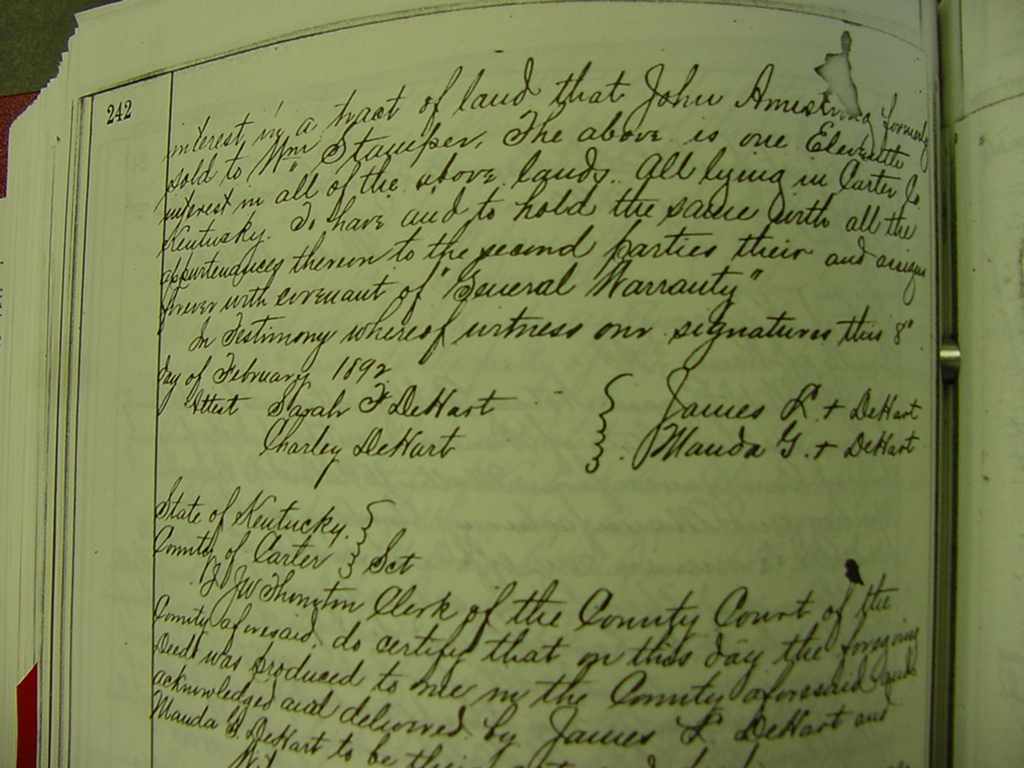 242
interest in a tract of land that John Armstrong formerly
sold to Wm Stamper. The above is one Eleventh
interest in all of the above lands. All lying in Carter Co.
Kentusky. To have and to hold the same with all the
appurtenances thereon to the second parties their and assigns
forever with covenant of "General Warranty"
In Testimony whereof witness our signatures this 8"
Day of February 1892
Attest Sarah F DeHart James L. + DeHart
Charley DeHart Manda G. + DeHart
State of Kentucky.
County of Carter Sct
I JW Clerk of the County Court of the
County aforesaid, do certify that on this day the foregoing
Deed was produced to me in the County aforesaid and
acknowledged and delivered by James L. DeHart and
Manda G. DeHart to be their